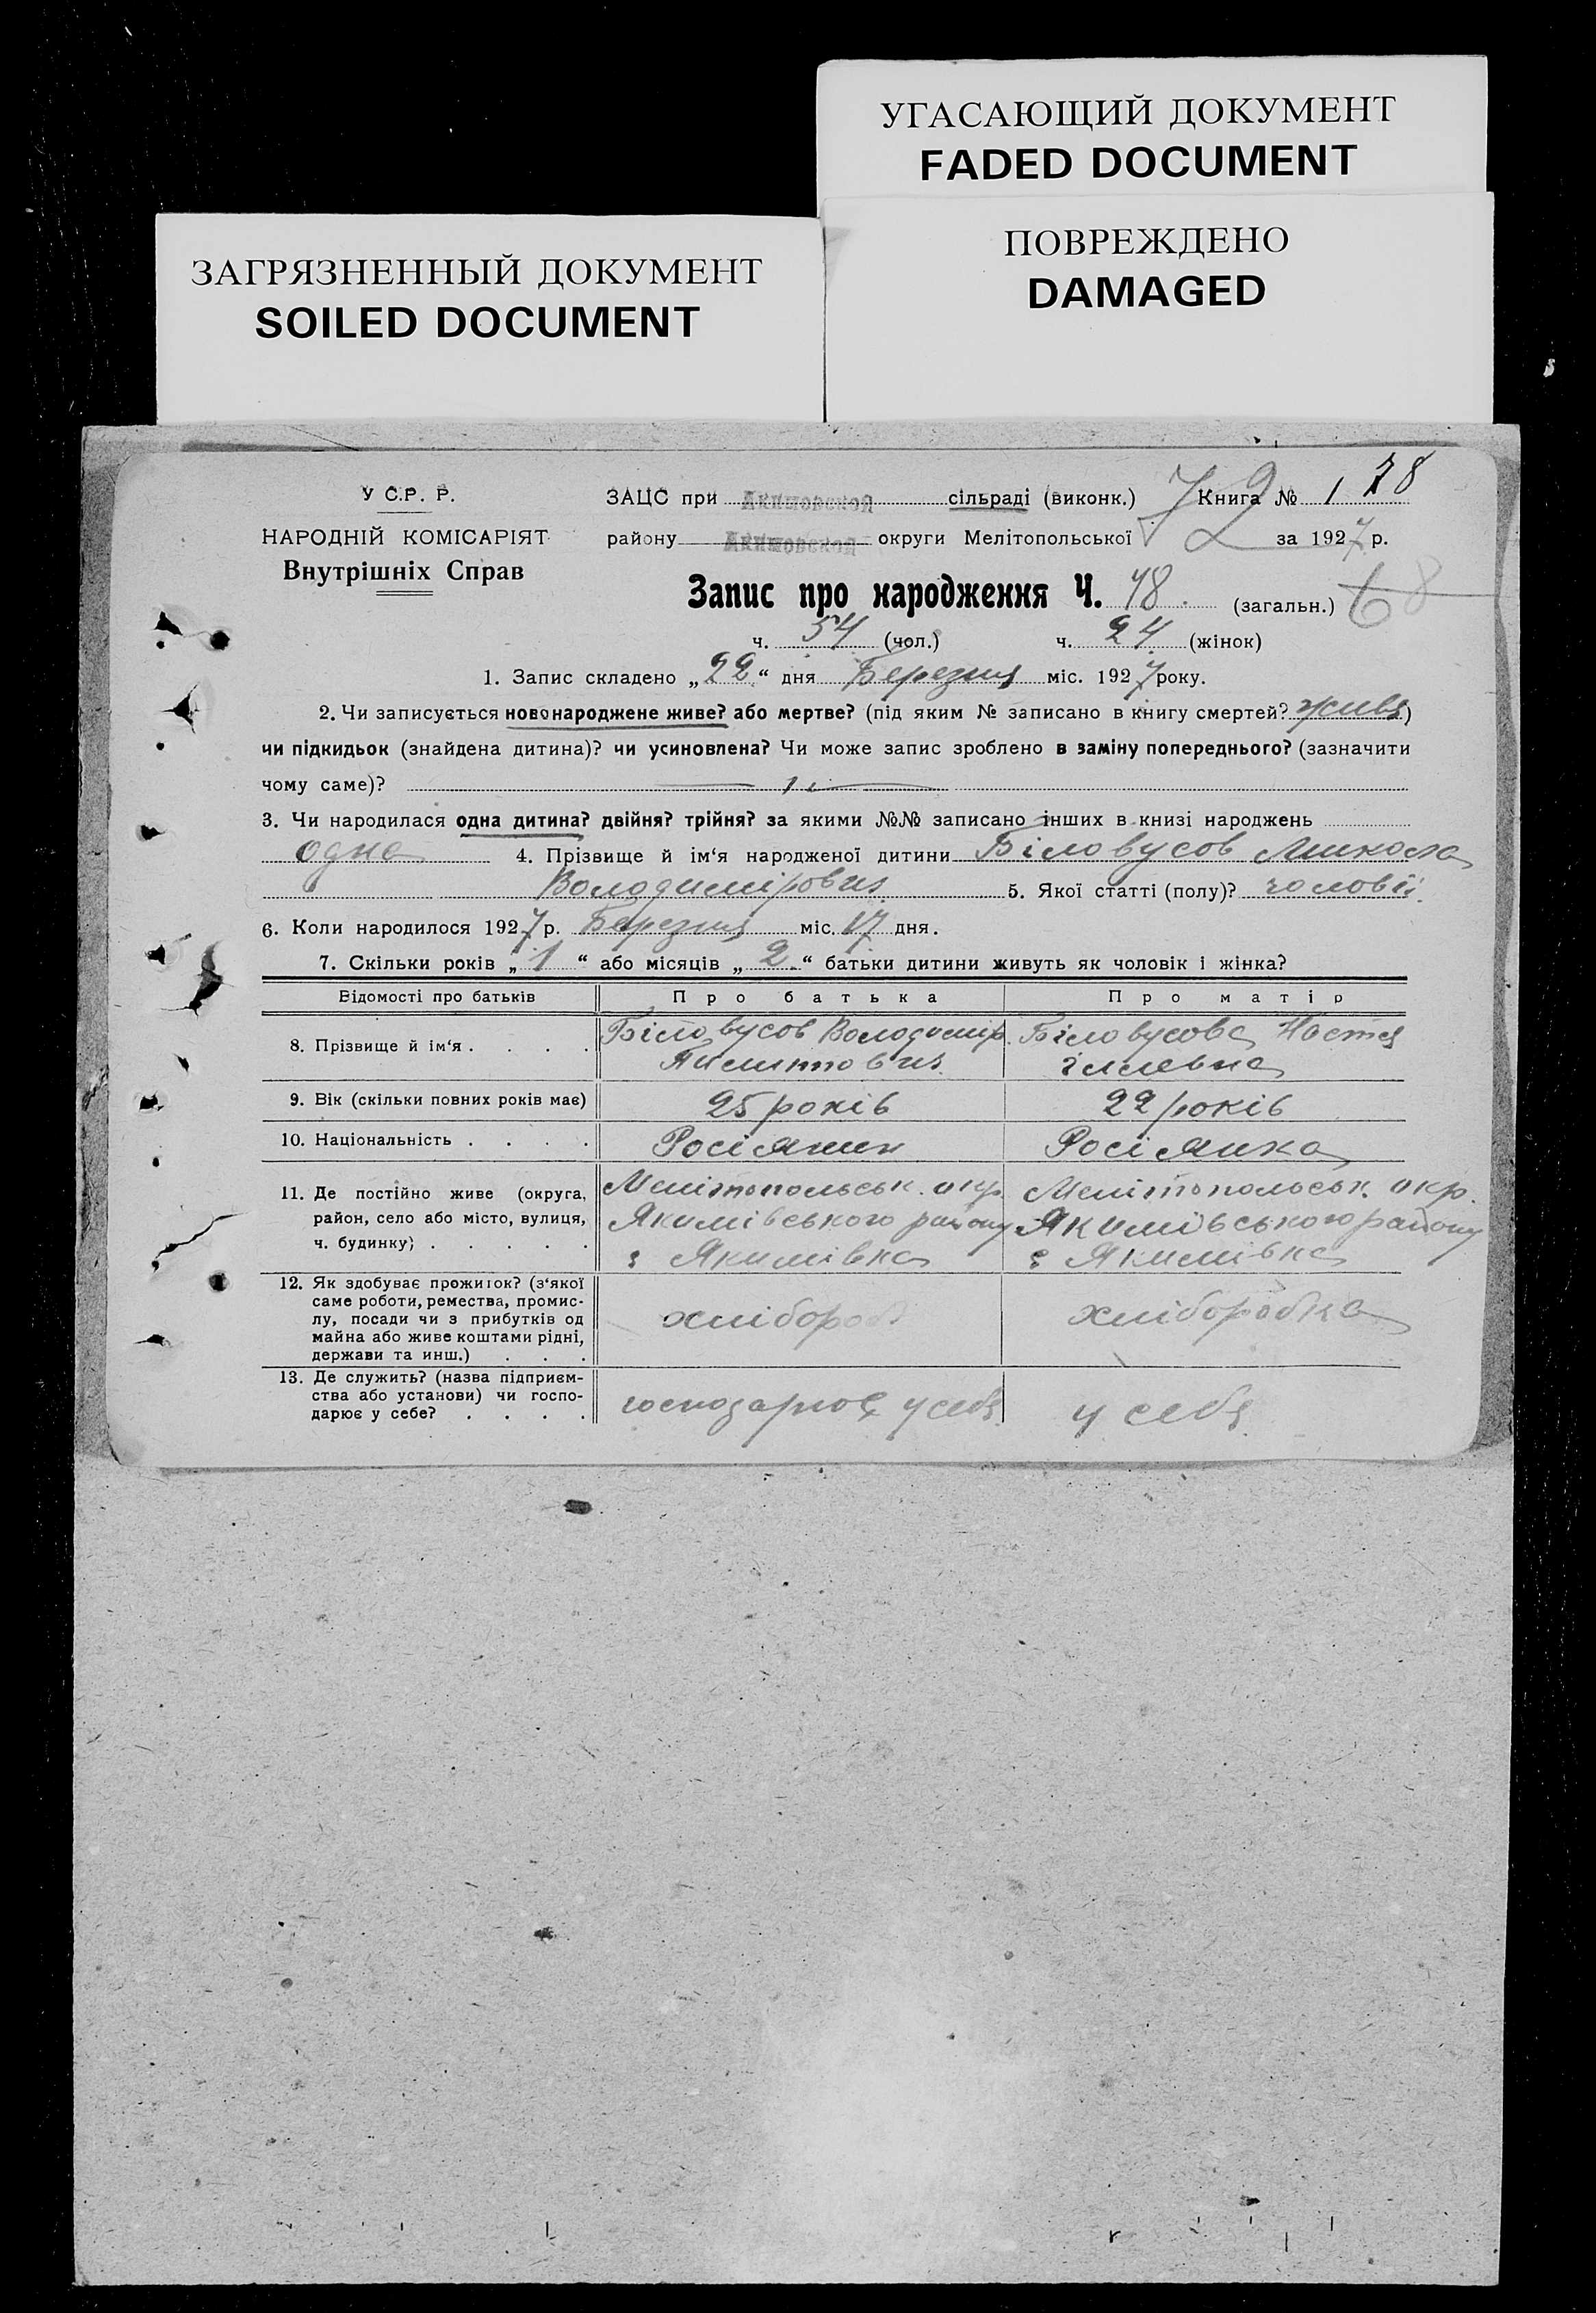 УГАСАЮЩИЙ ДОКУМЕНТ
FADED DOCUMENT
ПОВРЕЖДЕНО
DAMAGED
ЗАГРЯЗНЕННЫЙ ДОКУМЕНТ
SOILED DOCUMENT
У С.Р. Р.
НАРОДНІЙ КОМІСАРІЯТ
Внутрішніх Справ
ЗАЦС при Акимовской сільраді (виконк.) Книга № 1 28
району Акимовской округи Мелітопольської за 1927 р.
72
Запис про народження Ч. 78. (загальн.) 68
ч. 54 (чол.) ч. 24 (жінок)
1. Запис складено „22“ дня Березня міс. 1927 року.
2. Чи записується новонароджене живе? або мертве? (під яким № записано в книгу смертей? живе)
чи підкидьок (знайдена дитина)? чи усиновлена? Чи може запис зроблено в заміну попереднього? (зазначити
чому саме)?
3. Чи народилася одна дитина? двійня? трійня? за якими №№ записано інших в книзі народжень
одна 4. Прізвище й ім‘я народженої дитини Біловусов Микола
Володимірович 5. Якої статті (полу)? чоловії.
6. Коли народилося 1927 р. Березня міс. 17 дня.
7. Скільки років „1“ або місяців „2“ батьки дитини живуть як чоловік і жінка?
Відомості про батьків Про батька Про матір
8. Прізвище й ім‘я . . . . Біловусов Володимір. Біловусова Настя
Ілле­вна
9. Вік (скільки повних років має) 25 років 22 років
10. Національність . . . . Росіянин Росіянка
11. Де постійно живе (округа, Мелітопольськ. окр. Мелітопольськ. окр.
район, село або місто, вулиця, Якимівського району Якимівського району
ч. будинку) . . . . . с Якимівка с Якимівка
12. Як здобуває прожиток? (з‘якої
саме роботи, ремества, промис-
лу, посади чи з прибутків од хлібороб хліборобка
майна або живе коштами рідні,
держави та инш.) . . .
13. Де служить? (назва підприєм-
ства або установи) чи госпо- господарює у себя у себя
дарює у себе? . . . .